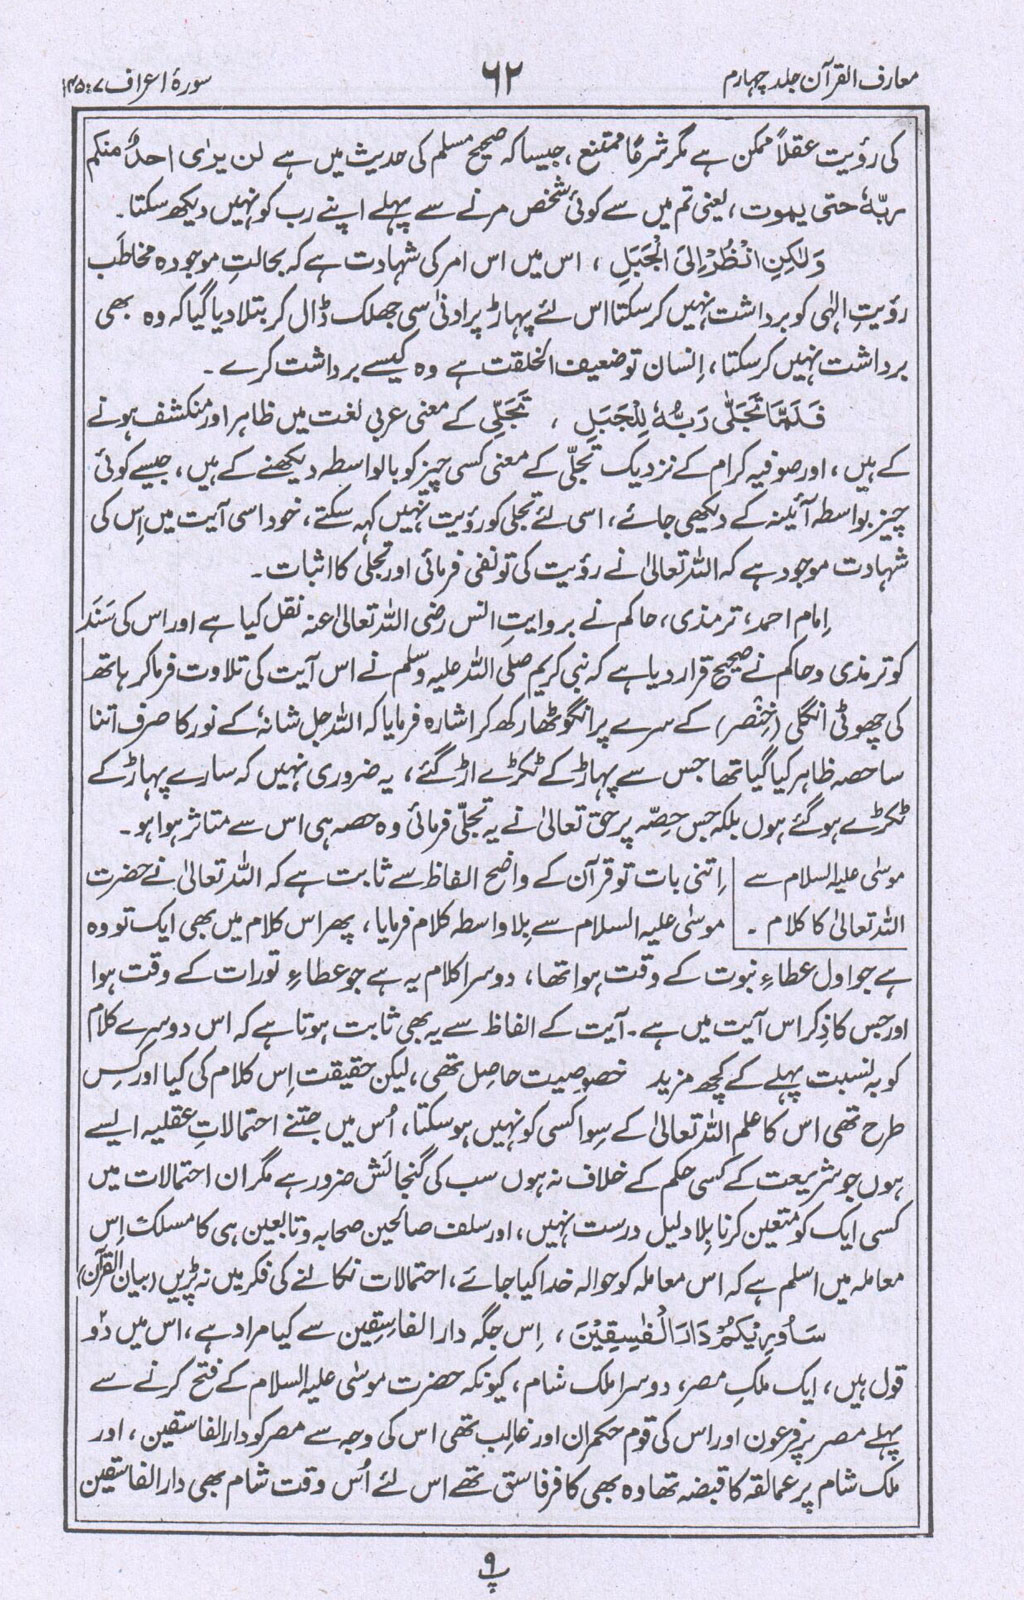 معارف القرآن جلد چہارم
۶۲
سورۂ اعراف ۷ : ۱۴۵
کی رؤیت عقلاً ممکن ہے مگر شرعًا ممتنع ، جیسا کہ صحیح مسلم کی حدیث میں ہے لن یرٰی احدٌ منکم
ربّہٗ حتی یموت ، یعنی تم میں سے کوئی شخص مرنے سے پہلے اپنے رب کو نہیں دیکھ سکتا۔
وَلٰکِنِ انْظُرْ اِلَی الْجَبَلِ ، اس میں اس امر کی شہادت ہے کہ بحالتِ موجودہ مخاطَب
رؤیتِ الٰہی کو برداشت نہیں کر سکتا اس لئے پہاڑ پر ادنیٰ سی جھلک ڈال کر بتلا دیا گیا کہ وہ بھی
برداشت نہیں کر سکتا ، اِنسان تو ضعیف الخلقت ہے وہ کیسے برداشت کرے ۔
فَلَمَّا تَجَلّٰی رَبُّہٗ لِلْجَبَلِ ، تَجَلِّی کے معنی عربی لغت میں ظاہر اور منکشف ہونے
کے ہیں ، اور صوفیہ کرام کے نزدیک تجلّی کے معنی کسی چیز کو بالواسطہ دیکھنے کے ہیں ، جیسے کوئی
چیز بواسطہ آئینہ کے دیکھی جائے ، اسی لئے تجلی کو رؤیت نہیں کہہ سکتے ، خود اسی آیت میں اِس کی
شہادت موجود ہے کہ اللہ تعالیٰ نے رؤیت کی تو نفی فرمائی اور تجلی کا اثبات ۔
اِمام احمد ، ترمذی ، حاکم نے بروایتِ انس رضی اللہ تعالیٰ عنہ نقل کیا ہے اور اس کی سَنَد
کو ترمذی و حاکم نے صحیح قرار دیا ہے کہ نبی کریم صلی اللہ علیہ وسلم نے اس آیت کی تلاوت فرما کر ہاتھ
کی چھوٹی انگلی (خِنْصر) کے سرے پر انگوٹھا رکھ کر اشارہ فرمایا کہ اللہ جل شانہٗ کے نور کا صرف اتنا
سا حصہ ظاہر کیا گیا تھا جس سے پہاڑ کے ٹکڑے اڑ گئے ، یہ ضروری نہیں کہ سارے پہاڑ کے
ٹکڑے ہو گئے ہوں بلکہ جس حِصّہ پر حق تعالیٰ نے یہ تجلّی فرمائی وہ حصہ ہی اس سے متاثر ہوا ہو ۔
موسٰی علیہ السلام سے اِتنی بات تو قرآن کے واضح الفاظ سے ثابت ہے کہ اللہ تعالیٰ نے حضرت
اللہ تعالیٰ کا کلام ۔ موسٰی علیہ السلام سے بِلا واسطہ کلام فرمایا ، پھر اس کلام میں بھی ایک تو وہ
ہے جو اول عطاءِ نبوت کے وقت ہوا تھا ، دوسرا کلام یہ ہے جو عطاءِ تورات کے وقت ہوا
اور جس کا ذِکر اس آیت میں ہے ۔ آیت کے الفاظ سے یہ بھی ثابت ہوتا ہے کہ اس دوسرے کلام
کو بہ نسبت پہلے کے کچھ مزید خصوصیت حاصل تھی ، لیکن حقیقت اِس کلام کی کیا اور کس
طرح تھی اس کا علم اللہ تعالیٰ کے سِوا کسی کو نہیں ہو سکتا ، اُس میں جتنے احتمالاتِ عقلیہ ایسے
ہوں جو شریعت کے کسی حکم کے خلاف نہ ہوں سب کی گنجائش ضرور ہے مگر ان احتمالات میں
کسی ایک کو متعین کرنا بِلا دلیل درست نہیں ، اور سلف صالحین صحابہ و تابعین ہی کا مسلک اِس
معاملہ میں اسلم ہے کہ اس معاملہ کو حوالہ خدا کیا جائے ، احتمالات نکالنے کی فکر میں نہ پڑیں (بیان القرآن)
سَاُورِیْکُمْ دَارَ الْفٰسِقِیْنَ ، اِس جگہ دار الفاسِقین سے کیا مراد ہے ، اس میں دٓو
قول ہیں ، ایک ملکِ مصر ، دوسرا ملک شام ، کیونکہ حضرت موسٰی علیہ السلام کے فتح کرنے سے
پہلے مصر پر فرعون اور اس کی قوم حکمران اور غالِب تھی اس کی وجہ سے مصر کو دار الفاسقین ، اور
ملک شام پر عمالقہ کا قبضہ تھا وہ بھی کافر فاسق تھے اس لئے اُس وقت شام بھی دار الفاسقین
پ ۹